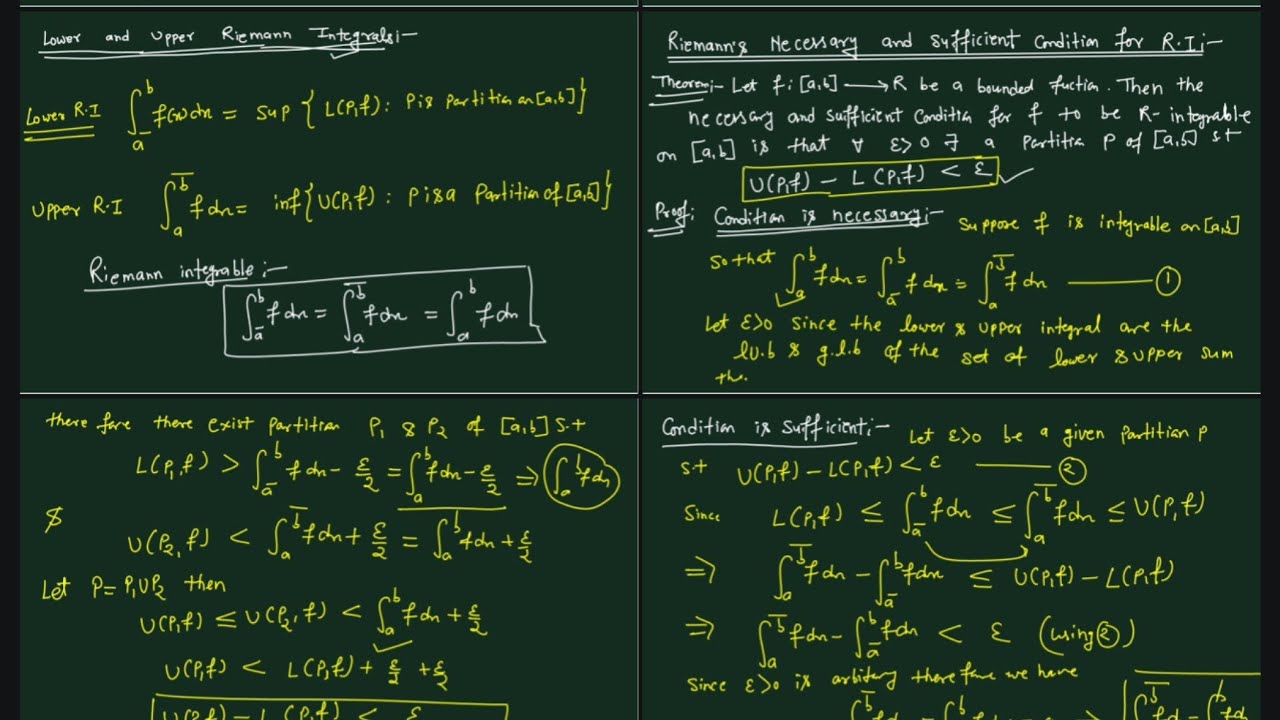 Lower and Upper Riemann Integrals:-
Lower R.I ∫_a^b f(x)dx = sup { L(P,f) : P is partition on [a,b] }
Upper R.I ∫_a^b f dx = inf { U(P,f) : P is a Partition of [a,b] }
Riemann integrable:-
∫_a^b f dx = ∫_a^b f dx = ∫_a^b f dx
Riemann's Necessary and Sufficient Condition for R.I:-
Theorem:- Let f: [a,b] → R be a bounded fuction. Then the
necessary and sufficient Condition for f to be R-integrable
on [a,b] is that ∀ ε>0 ∃ a Partition P of [a,b] st
U(P,f) - L(P,f) < ε
Proof: Condition is necessary:- Suppose f is integrable on [a,b]
So that ∫_a^b f dx = ∫_a^b f dx = ∫_a^b f dx —— ①
Let ε>0 since the lower & upper integral are the
l.u.b & g.l.b of the set of lower & upper sum
the.
there fore there exist Partition P₁ & P₂ of [a,b] s.t
L(P₁,f) > ∫_a^b f dx - ε/2 = ∫_a^b f dx - ε/2 ⇒ ∫_a^b f dx
$
U(P₂,f) < ∫_a^b f dx + ε/2 = ∫_a^b f dx + ε/2
Let P = P₁∪P₂ then
U(P,f) ≤ U(P₂,f) < ∫_a^b f dx + ε/2
U(P,f) < L(P,f) + ε/2 + ε/2
U(P,f) - L(P,f) < ε
Condition is sufficient:- Let ε>0 be a given partition P
st U(P,f) - L(P,f) < ε —— ②
Since L(P,f) ≤ ∫_a^b f dx ≤ ∫_a^b f dx ≤ U(P,f)
⇒ ∫_a^b f dx - ∫_a^b f dx ≤ U(P,f) - L(P,f)
⇒ ∫_a^b f dx - ∫_a^b f dx < ε (using ②)
Since ε>0 is arbitary there fore we have